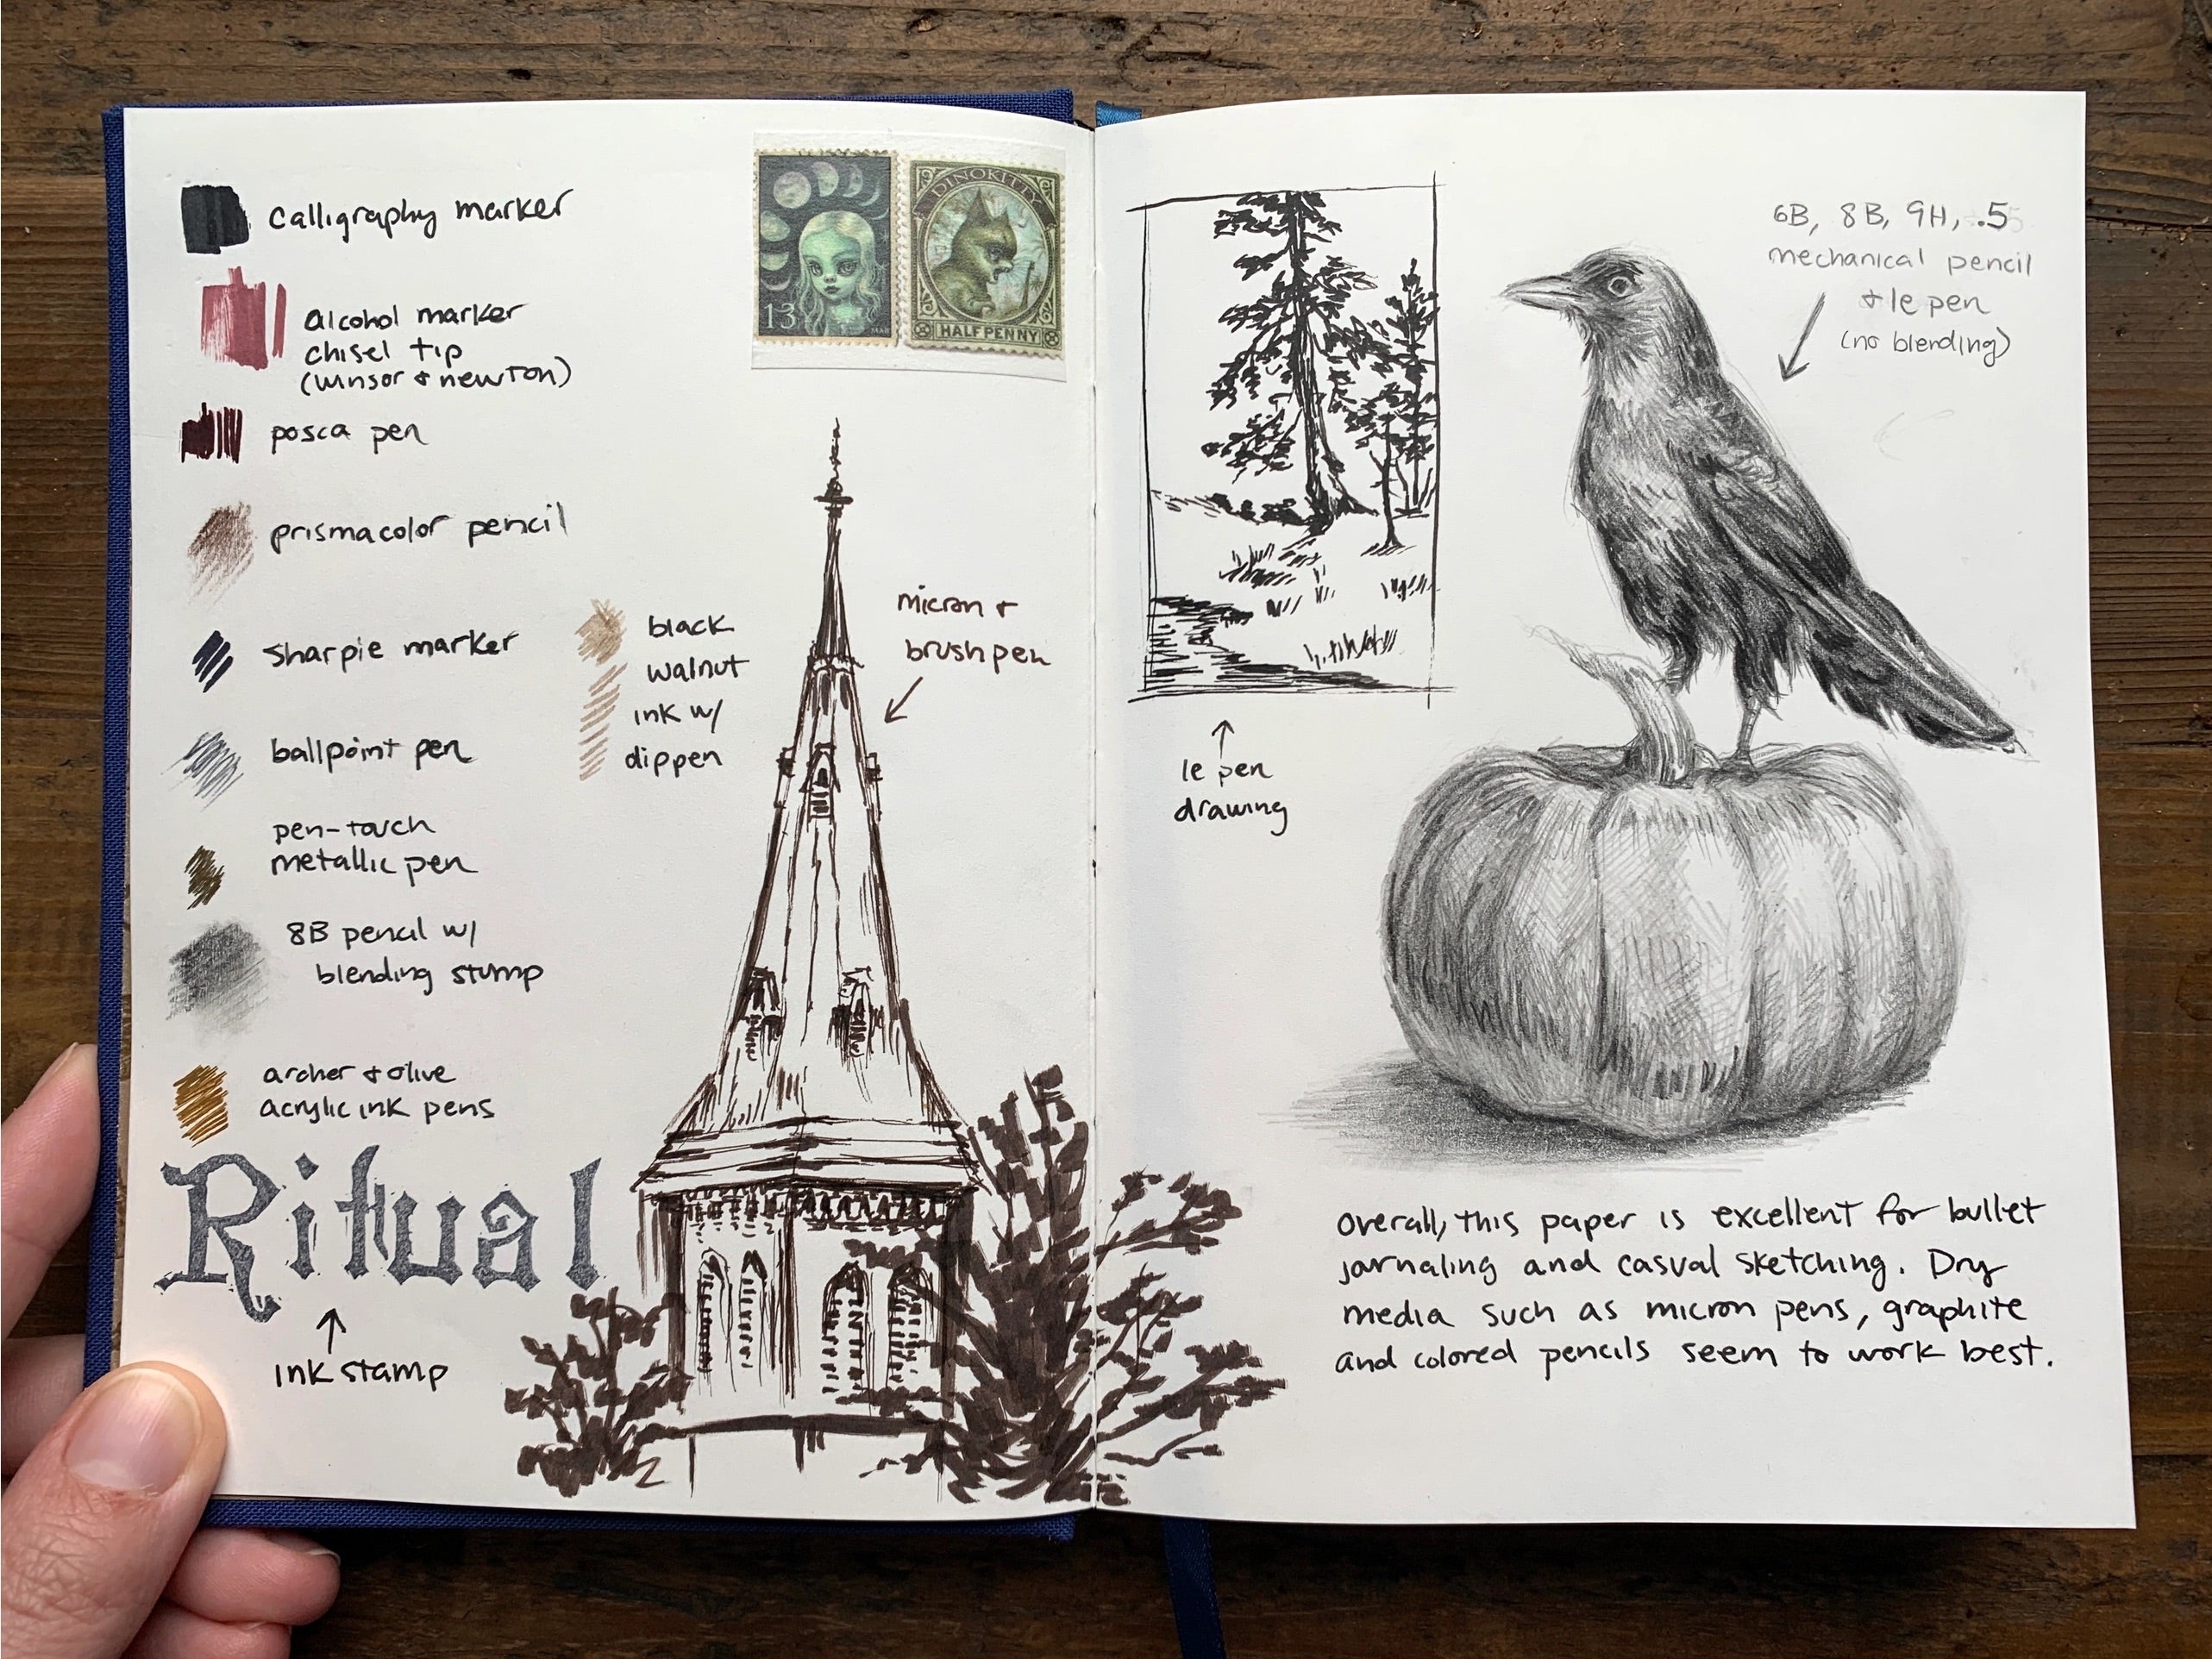 calligraphy marker
alcohol marker
chisel tip
(winsor + newton)
posca pen
prismacolor pencil
sharpie marker
ballpoint pen
pen-touch
metallic pen
8B pencil w/
blending stump
archer + olive
acrylic ink pens
Ritual
ink stamp
13
DINOKITTY
HALF PENNY
black
walnut
ink w/
dippen
micron +
brushpen
le pen
drawing
6B, 8B, 9H, .5
mechanical pencil
+ le pen
(no blending)
Overall, this paper is excellent for bullet
journaling and casual sketching. Dry
media such as micron pens, graphite
and colored pencils seem to work best.